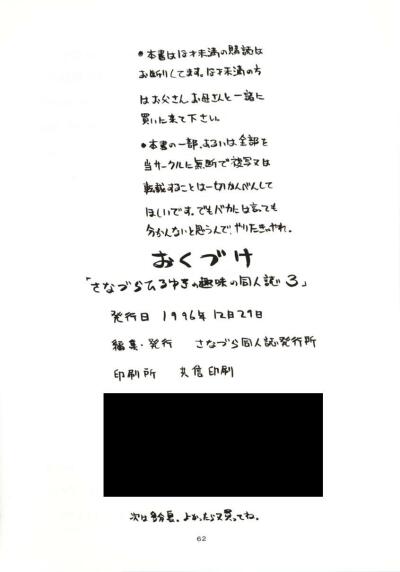 ●本書は18才未満の購読は
お断りしてます。18才未満の方
はお父さん、お母さんと一緒に
買いに来て下さい。
●本書の一部、あるいは全部を
当サークルに無断で複写又は
転載することは一切かんべんして
ほしいです。でもバカには言っても
分かんないと思うんで、やりたきゃやれ。
おくづけ
「さなづらひろゆきの趣味の同人誌3」
発行日 1996年12月29日
編集・発行 さなづら同人誌発行所
印刷所 共信印刷
次は多分夏。よかったら又買ってね。
62